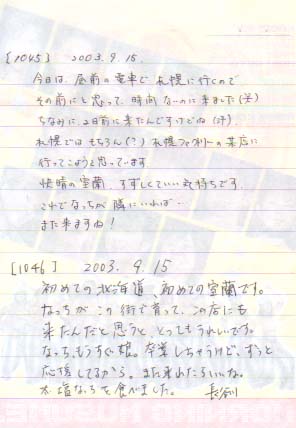 [1045] 2003.9.15.
今日は、昼前の電車で札幌に行くので
その前にと思って、時間ないのに来ました(笑)
ちなみに、2日前に来たんですけどね(汗)
札幌ではもちろん(?)札幌ファクトリーの某店に
行ってこようと思っています。
快晴の室蘭、すずしくていい気持ちです。
これでなっちが隣にいれば…
また来ますね!
[1046] 2003.9.15
初めての北海道、初めての室蘭です。
なっちがこの街で育って、この店にも
来たんだと思うと、とってもうれしいです。
なっち、もうすぐ娘。卒業しちゃうけど、ずっと
応援してるから。また来れたらいいね。
塩なっちを食べました。 長谷川